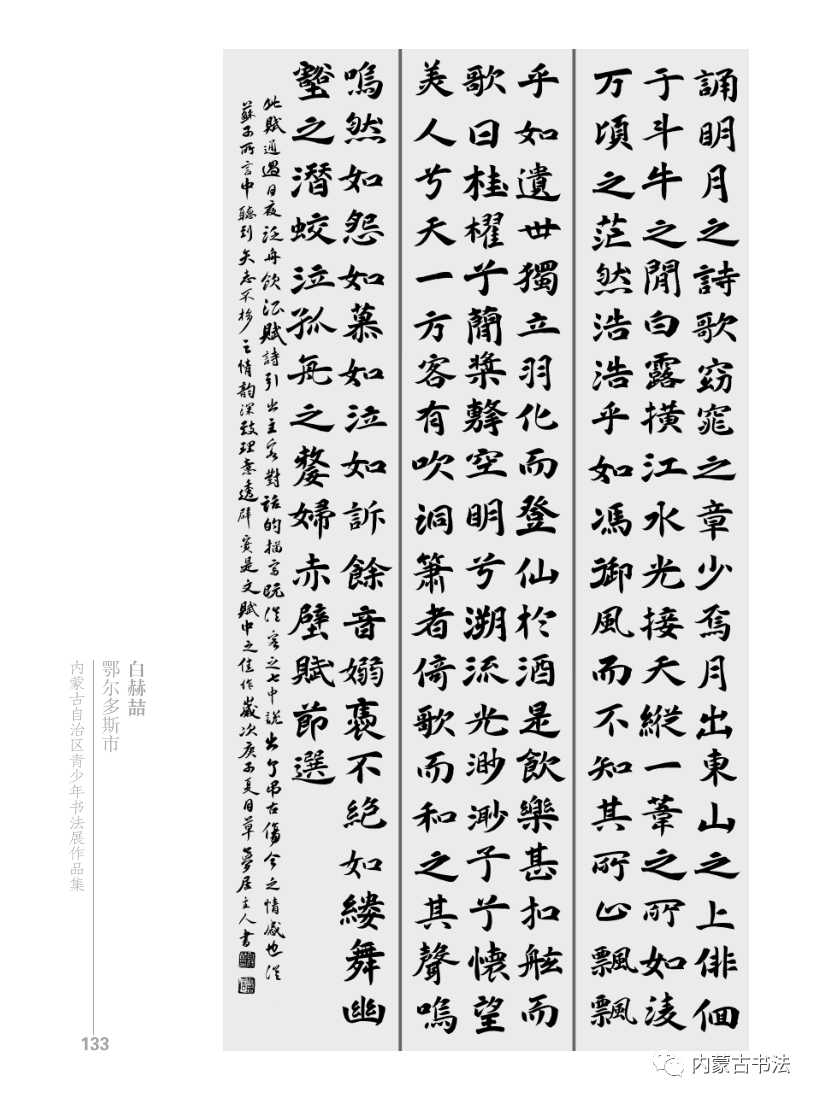 誦明月之詩歌窈窕之章少焉月出東山之上俳佪
于斗牛之閒白露横江水光接天縱一葦之所如淩
万頃之茫然浩浩乎如馮御風而不知其所止飄飄
乎如遺世獨立羽化而登仙於酒是飲樂甚扣舷而
歌曰桂櫂兮蘭槳擊空明兮溯流光渺渺子兮懷望
美人兮天一方客有吹洞簫者倚歌而和之其聲嗚
嗚然如怨如慕如泣如訴餘音嫋裊不絶如縷舞幽
壑之潛蛟泣孤舟之嫠婦赤壁賦節選
此賦通過日夜泛舟飲酒賦詩引出主客對話的描寫既從客之七中説出了吊古傷今之情感也從
蘇子所言中聽到矢志不移之情韵深致理意透辟實是文賦中之佳作歲次庚子夏日草夢居主人書
白赫喆
鄂尔多斯市
内蒙古自治区青少年书法展作品集
133
内蒙古书法